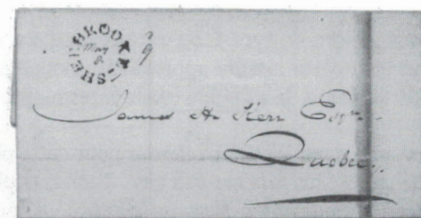 SHERBROOKE
May
9
James A Kerr Esqr.
Quebec.